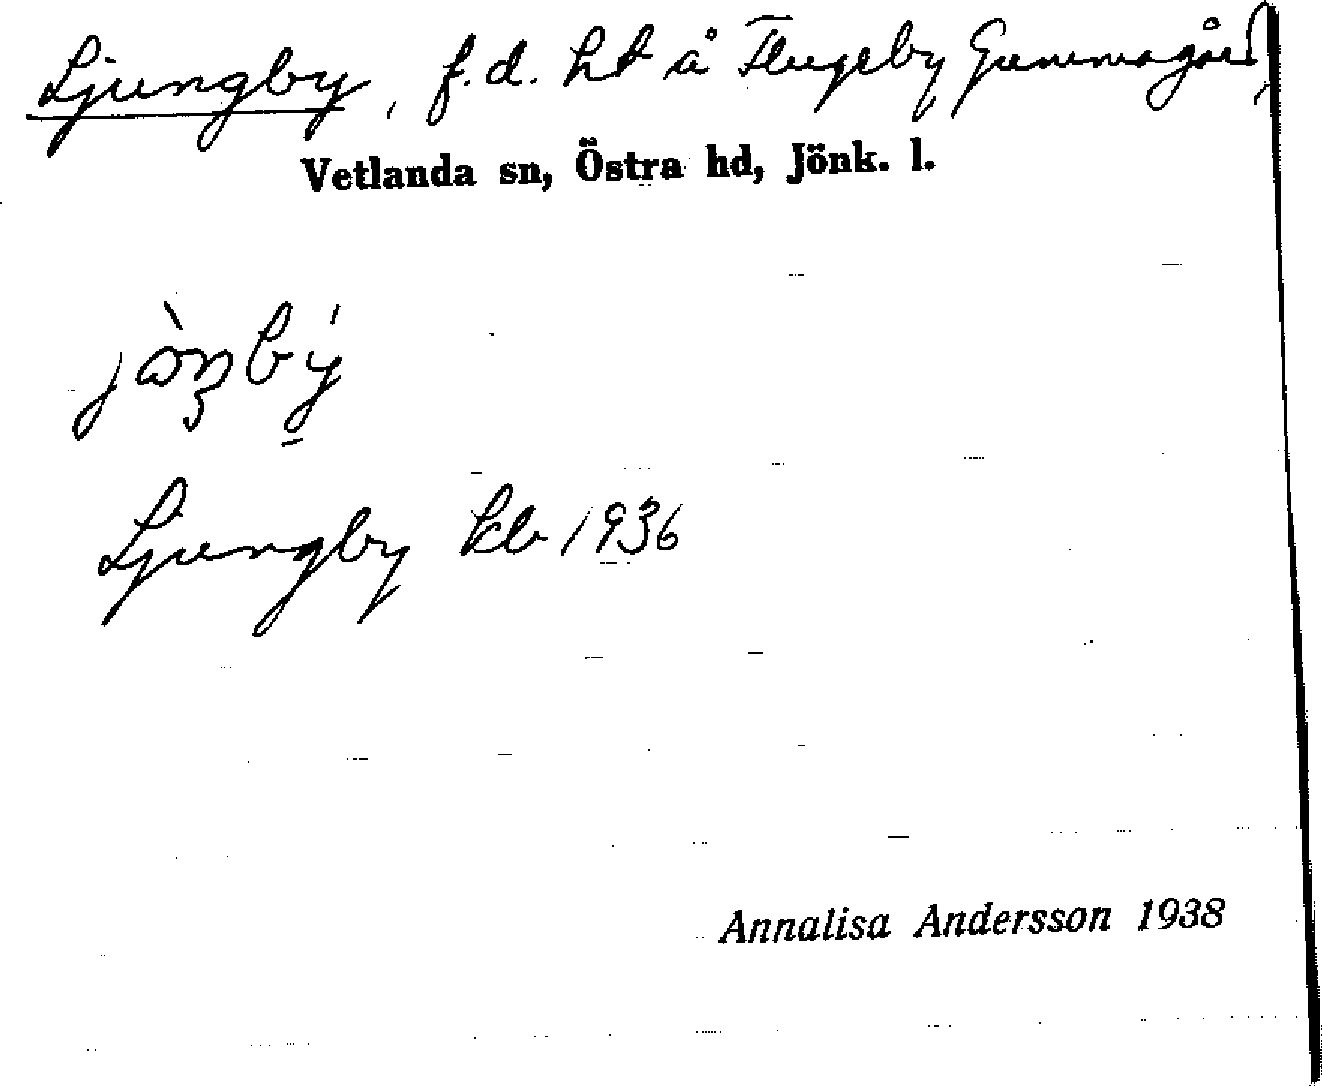 Ljungby, f.d. ht å Flugeby Gummagård,
Vetlanda sn, Östra hd, Jönk. l.
Ljungby kb 1936
Annalisa Andersson 1938